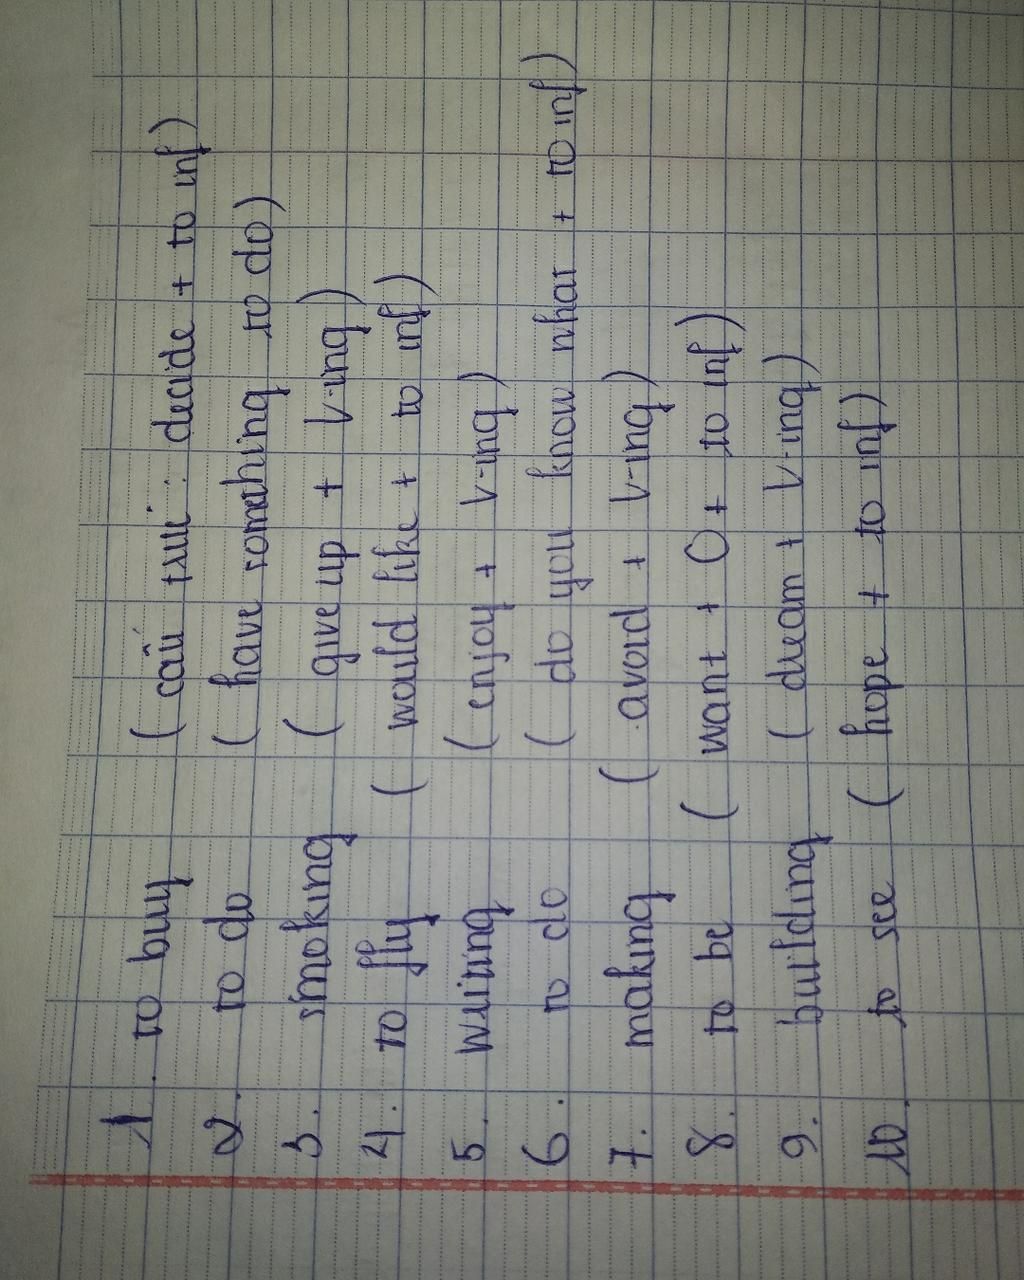 1. to buy (cấu trúc: decide + to inf)
2. to do (have something to do)
3. smoking (give up + V-ing)
4. to fly (would like + to inf)
5. writing (enjoy + V-ing)
6. to do (do you know what + to inf)
7. making (avoid + V-ing)
8. to be (want + O + to inf)
9. building (dream + V-ing)
10. to see (hope + to inf)